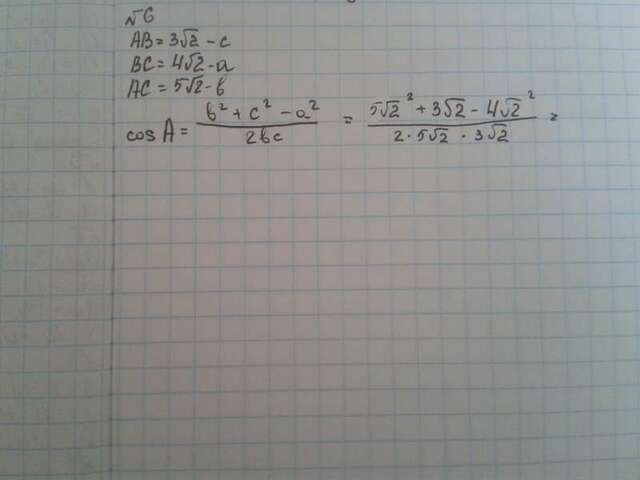 №6
AB = 3√2 - c
BC = 4√2 - a
AC = 5√2 - b
cos A = (b² + c² - a²) / (2bc) = (5√2² + 3√2 - 4√2²) / (2 · 5√2 · 3√2) =